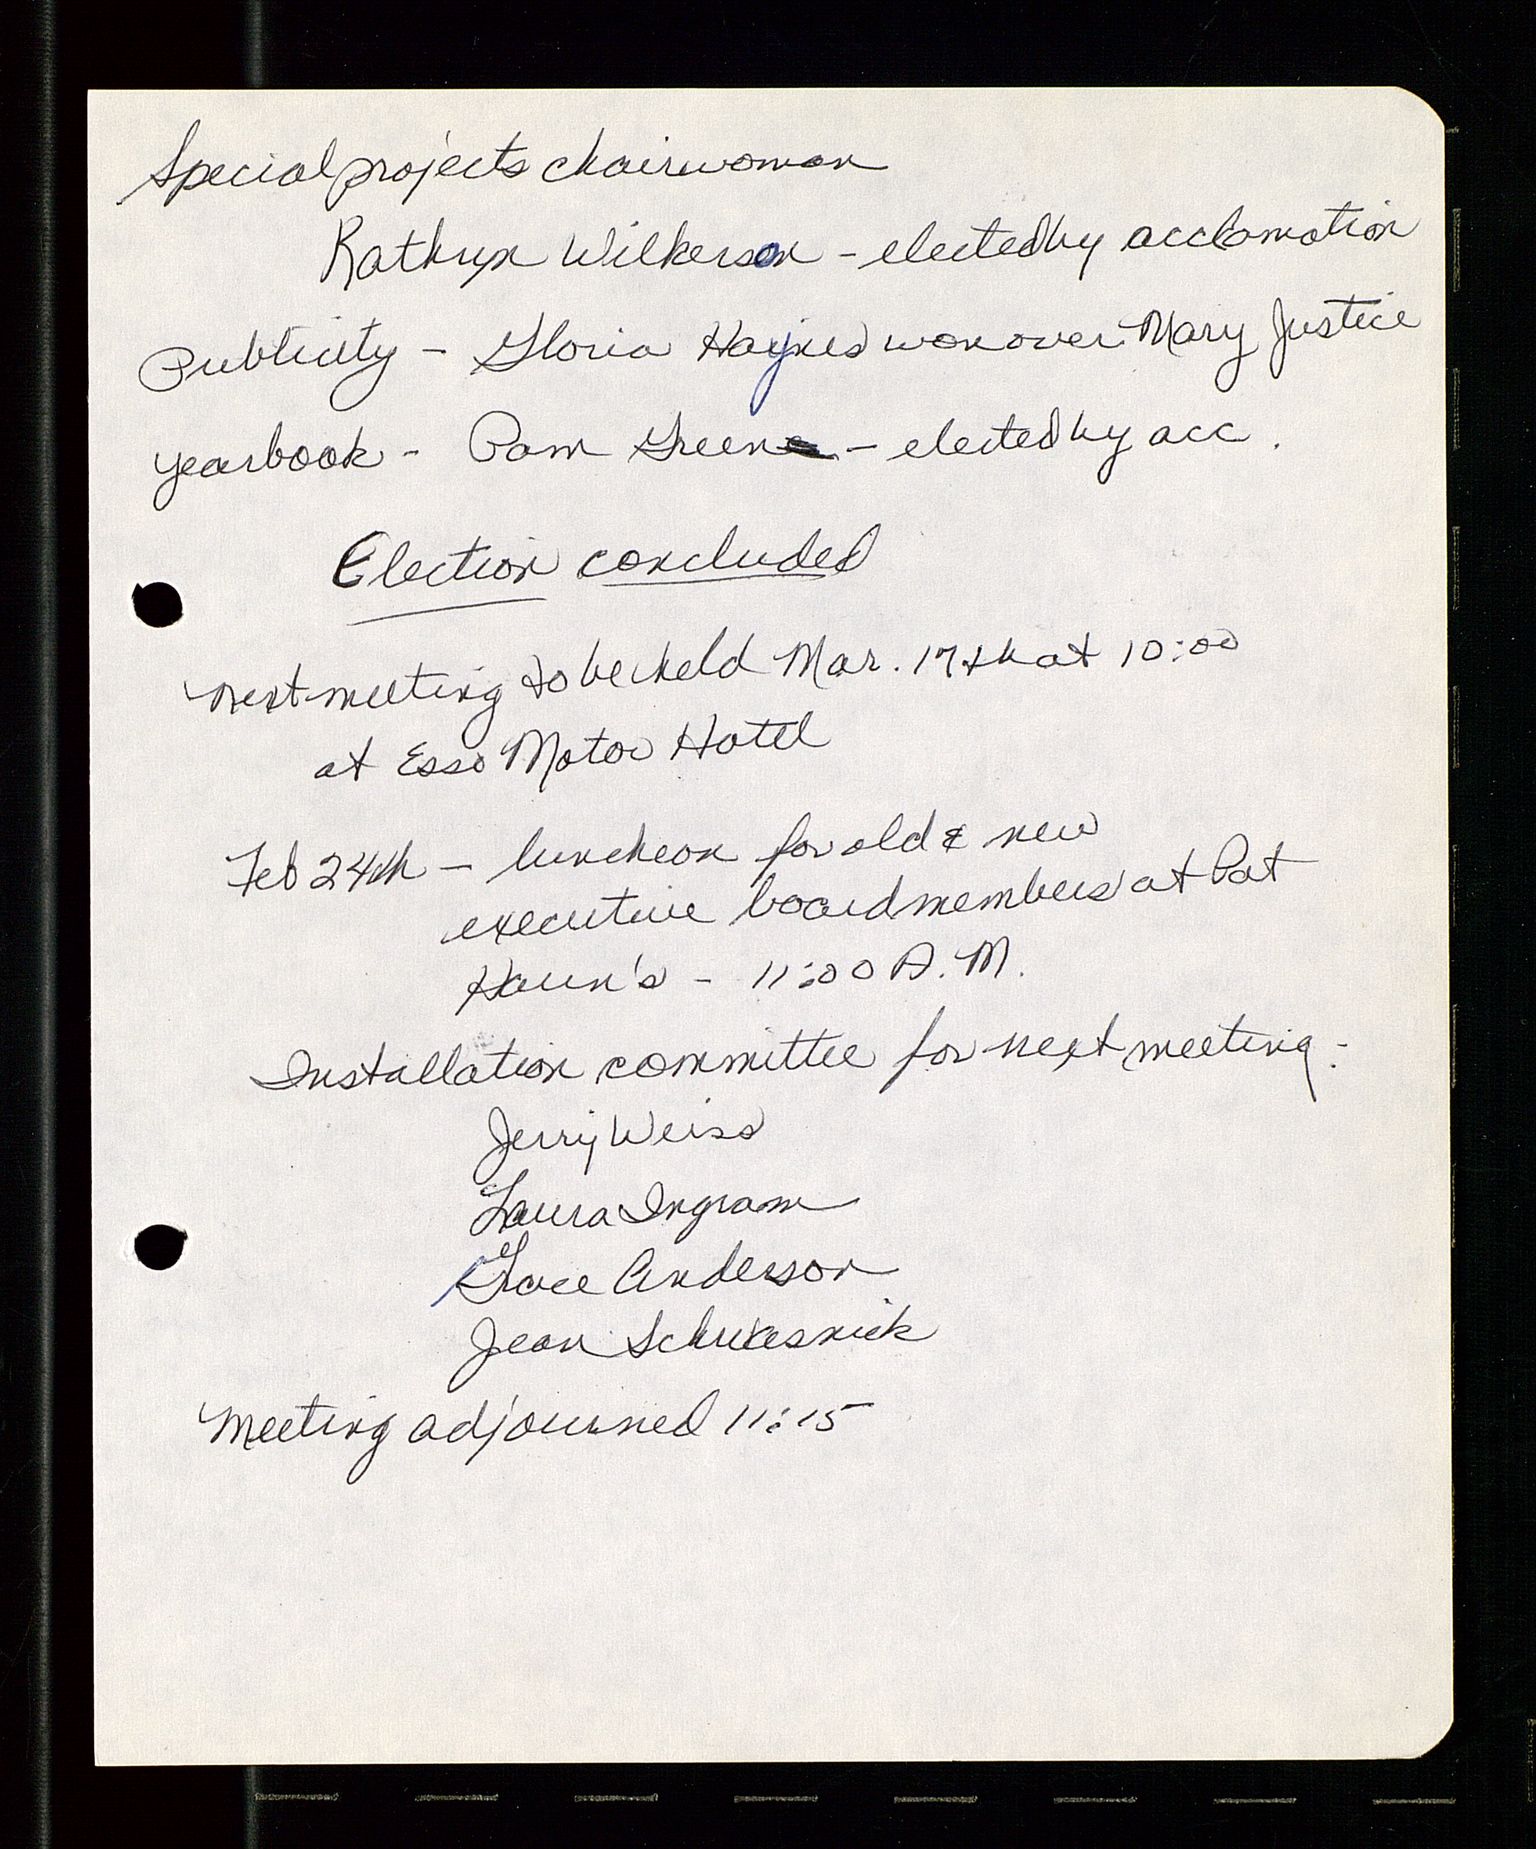 Special projects chairwoman
Kathryn Wilkerson - elected by acclamation
Publicity - Gloria Haynes won over Mary Justice
yearbook - Pam Green - elected by acc.
Election concluded
next meeting to be held Mar. 17th at 10:00
at Esso Motor Hotel
Feb 24th - luncheon for old & new
executive board members at Pat
Haun's - 11:00 A.M.
Installation committee for next meeting -
Jerry Weiss
Laura Ingram
Grace Anderson
Jean
Meeting adjourned 11:15